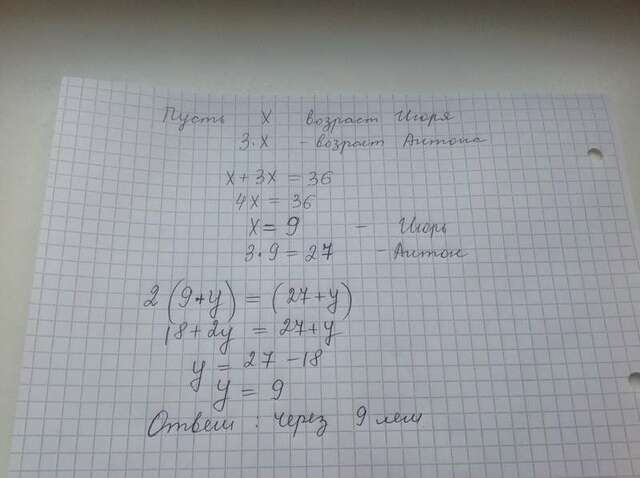 Пусть x возраст Игоря
3·x - возраст Антона
x + 3x = 36
4x = 36
x = 9 - Игорь
3·9 = 27 - Антон
2(9+y) = (27+y)
18+2y = 27+y
y = 27 - 18
y = 9
Ответ: через 9 лет